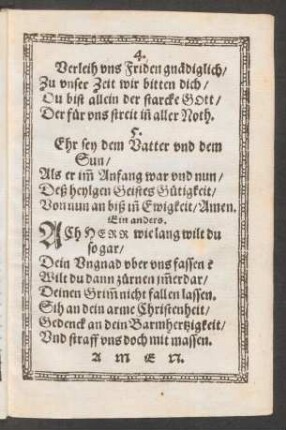 4.
Verleih vns Friden gnädiglich/
Zu vnser Zeit wir bitten dich/
Du bist allein der starcke GOtt/
Der für vns streit in̄ aller Noth.
5.
Ehr sey dem Vatter vnd dem
Sun/
Als er im̄ Anfang war vnd nun/
Deß heylgen Geistes Gütigkeit/
Von nun an biß in̄ Ewigkeit/Amen.
Ein anders.
ACh HERR wie lang wilt du
so gar/
Dein Vngnad vber vns fassen?
Wilt du dann zürnen im̄erdar/
Deinen Grim̄ nicht fallen lassen.
Sih an dein arme Christenheit/
Gedenck an dein Barmhertzigkeit/
Vnd straff vns doch mit massen.
AMEN.